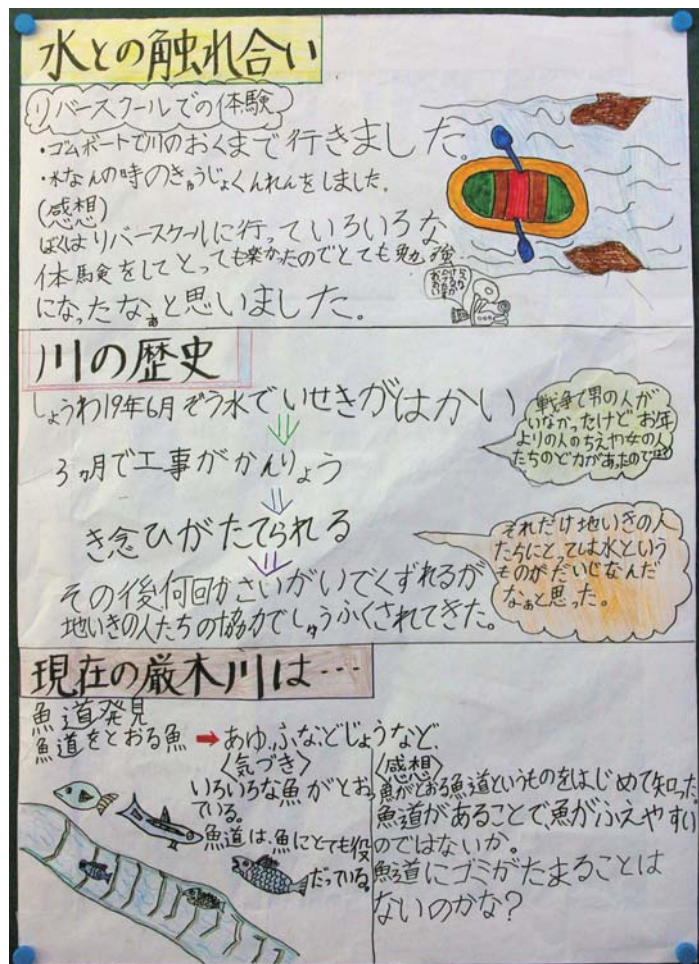 水との触れ合い
リバースクールでの体験
・ゴムボートで川のおくまで行きました。
・水なんの時のきゅうじょくんれんをしました。
(感想)
ぼくはリバースクールに行っていろいろな
体験をしてとっても楽かったのでとても勉強
になったなぁと思いました。
川の歴史
しょうわ19年6月ぞう水でいせきがはかい
3ヵ月で工事がかんりょう
き念ひがたてられる
その後何回かさいがいでくずれるが
地いきの人たちの協力でしゅうふくされてきた。
戦争で男の人が
いなかったけどお年
よりの人のちえや女の人
たちのど力があったので
それだけ地いきの人
たちにとっては水という
ものがだいじなんだ
なぁと思った。
現在の厳木川は…
魚道発見
魚道をとおる魚→あゆ、ふな、どじょうなど、
〈気づき〉
いろいろな魚がとおっ
ている。
魚道は、魚にとても役
だっている。
〈感想〉
魚がとおる魚道というものをはじめて知った
魚道があることで、魚がふえやすい
のではないか。
魚道にゴミがたまることは
ないのかな?